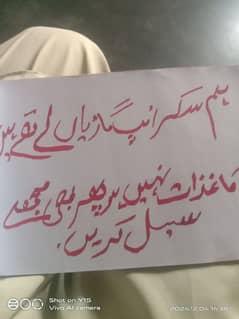 ہم سکراپ گاڑیاں لے تے ہیں
کاغذات نہیں ہو پھر بھی مجھے
سیل کریں.
Shot on Y15
Vivo AI camera
2024.12.04